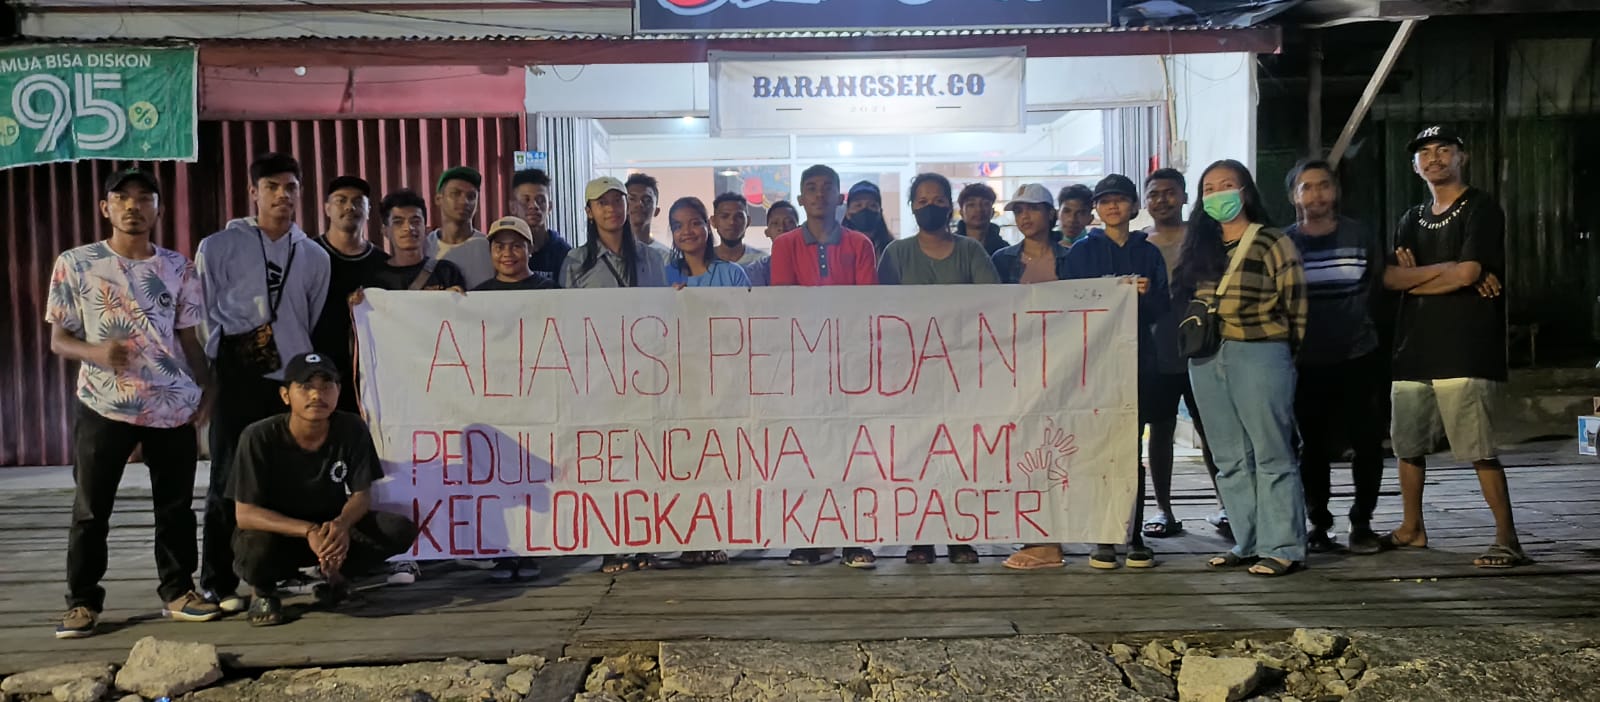 MUA BISA DISKON
95%
BARANGSEK.CO
2021
ALIANSI PEMUDA NTT
PEDULI BENCANA ALAM
KEC. LONGKALI, KAB. PASER